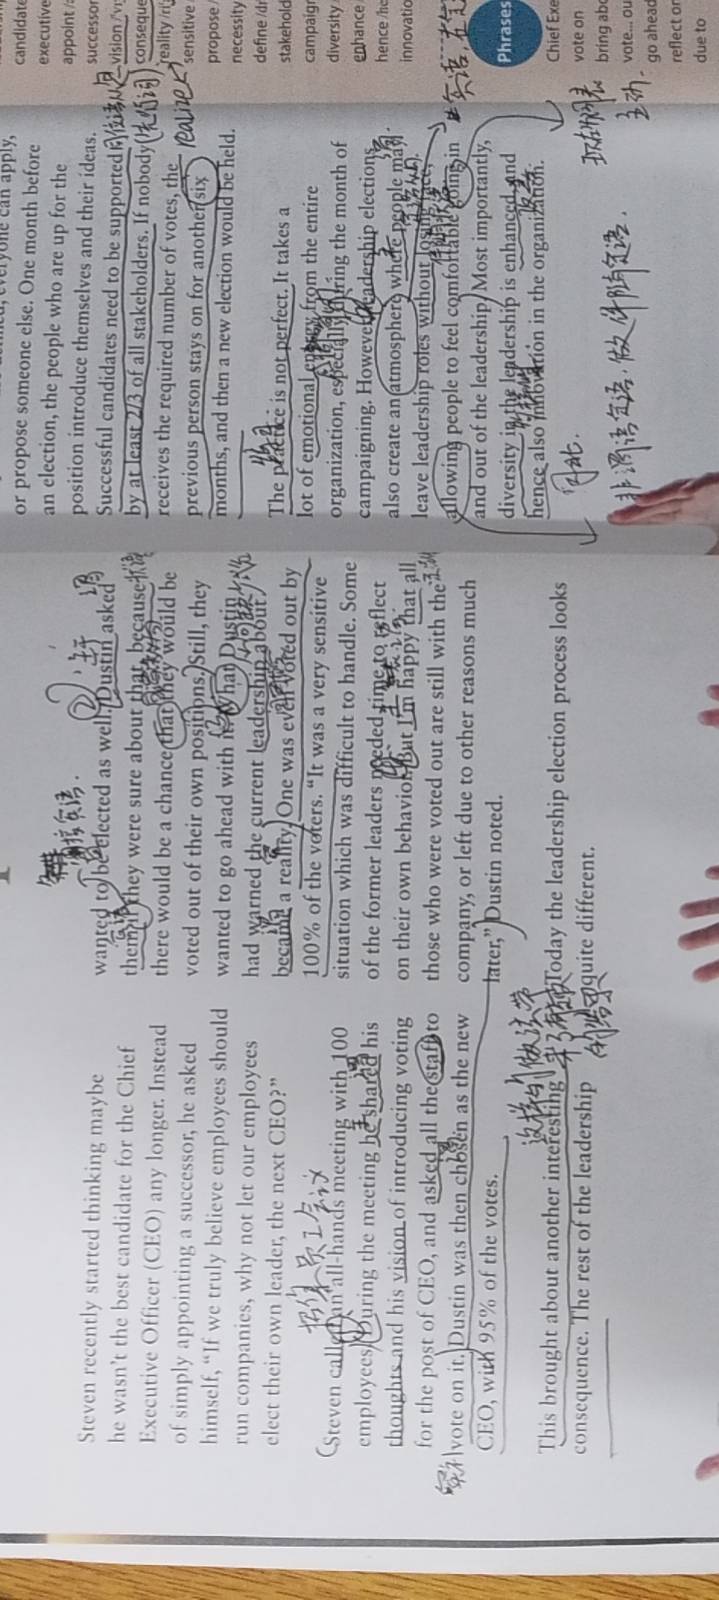 Steven recently started thinking maybe
he wasn't the best candidate for the Chief
Executive Officer (CEO) any longer. Instead
of simply appointing a successor, he asked
himself, “If we truly believe employees should
run companies, why not let our employees
elect their own leader, the next CEO?”
招集员工会议
Steven called an all-hands meeting with 100
employees. During the meeting he shared his
thoughts and his vision of introducing voting
for the post of CEO, and asked all the staff to
vote on it. Dustin was then chosen as the new
CEO, with 95% of the votes.
这样的做法带
来了有趣
的结果
This brought about another interesting
consequence. The rest of the leadership
wanted to be elected as well. Dustin asked
them if they were sure about that, because
there would be a chance that they would be
voted out of their own positions. Still, they
wanted to go ahead with it. What Dustin
had warned the current leadership about
became a reality. One was even voted out by
100% of the voters. “It was a very sensitive
situation which was difficult to handle. Some
of the former leaders needed time to reflect
on their own behavior. But I'm happy that all
those who were voted out are still with the
company, or left due to other reasons much
later,” Dustin noted.
Today the leadership election process looks
quite different.
everyone can apply,
or propose someone else. One month before
an election, the people who are up for the
position introduce themselves and their ideas.
Successful candidates need to be supported
by at least 2/3 of all stakeholders. If nobody
receives the required number of votes, the
previous person stays on for another six
months, and then a new election would be held.
The practice is not perfect. It takes a
lot of emotional energy from the entire
organization, especially during the month of
campaigning. However, leadership elections
also create an atmosphere where people may
leave leadership roles without losing face,
allowing people to feel comfortable going in
and out of the leadership. Most importantly,
diversity in the leadership is enhanced and
hence also innovation in the organization.
非谓语定语，做伴随定语．
现在分词表
主动．
realize
candidate
executive
appoint
successor
vision
conseque
reality
sensitive
propose
necessity
define
stakehold
campaign
diversity
enhance
hence
innovatio
Phrases
Chief Exe
vote on
bring abo
vote... ou
go ahead
reflect on
due to